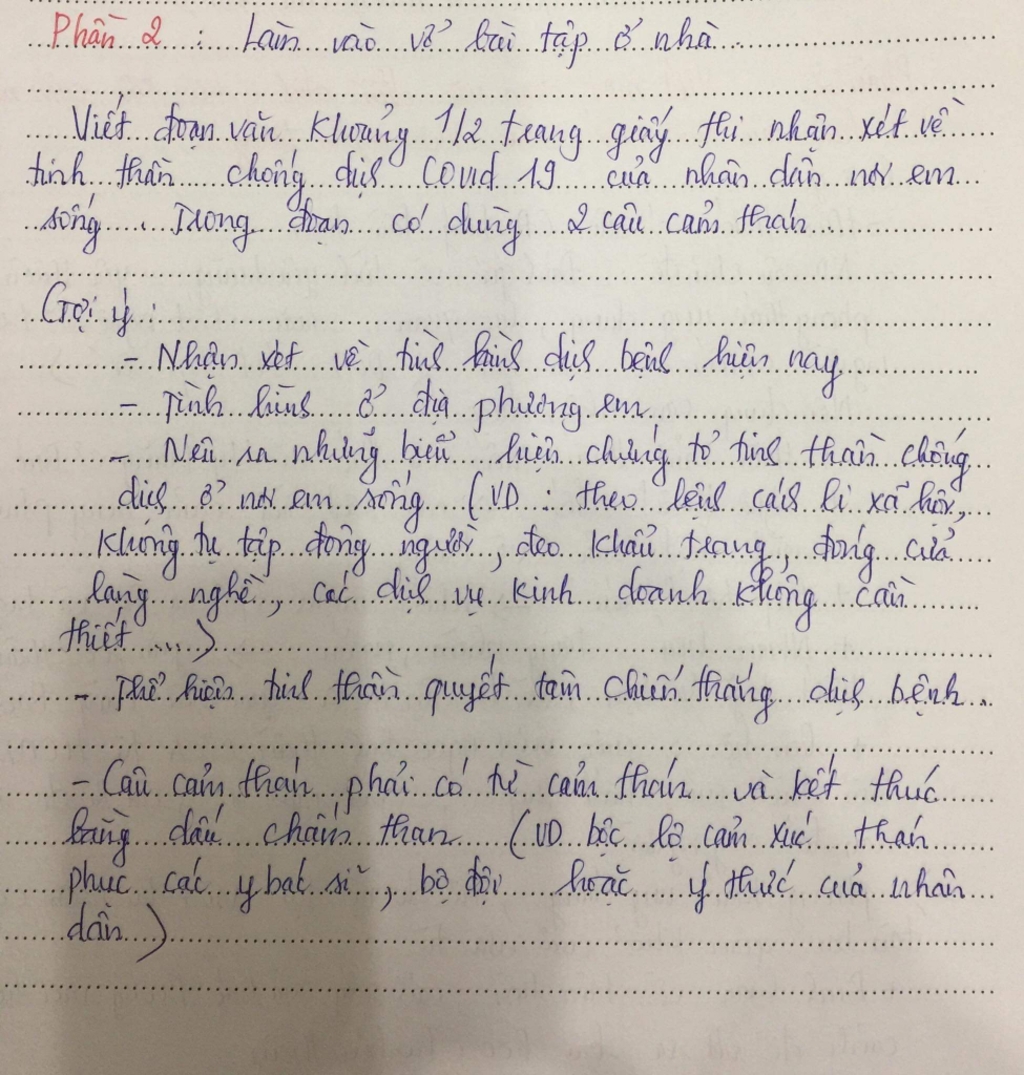 Phần 2 : Làm vào vở bài tập ở nhà
Viết đoạn văn khoảng 1/2 trang giấy thi nhận xét về
tinh thần chống dịch Covid 19 của nhân dân nơi em
sống. Trong đoạn có dùng 2 câu cảm thán
Gợi ý :
- Nhận xét về tình hình dịch bệnh hiện nay
- Tình hình ở địa phương em
- Nêu ra những biểu hiện chứng tỏ tinh thần chống
dịch ở nơi em sống (VD : theo lệnh cách li xã hội,
không tụ tập đông người, đeo khẩu trang, đóng cửa
làng nghề, các dịch vụ kinh doanh không cần
thiết ...)
- Thể hiện tinh thần quyết tâm chiến thắng dịch bệnh.
- Câu cảm thán phải có từ cảm thán và kết thúc
bằng dấu chấm than (VD bộc lộ cảm xúc thán
phục các y bác sĩ, bộ đội hoặc ý thức của nhân
dân)